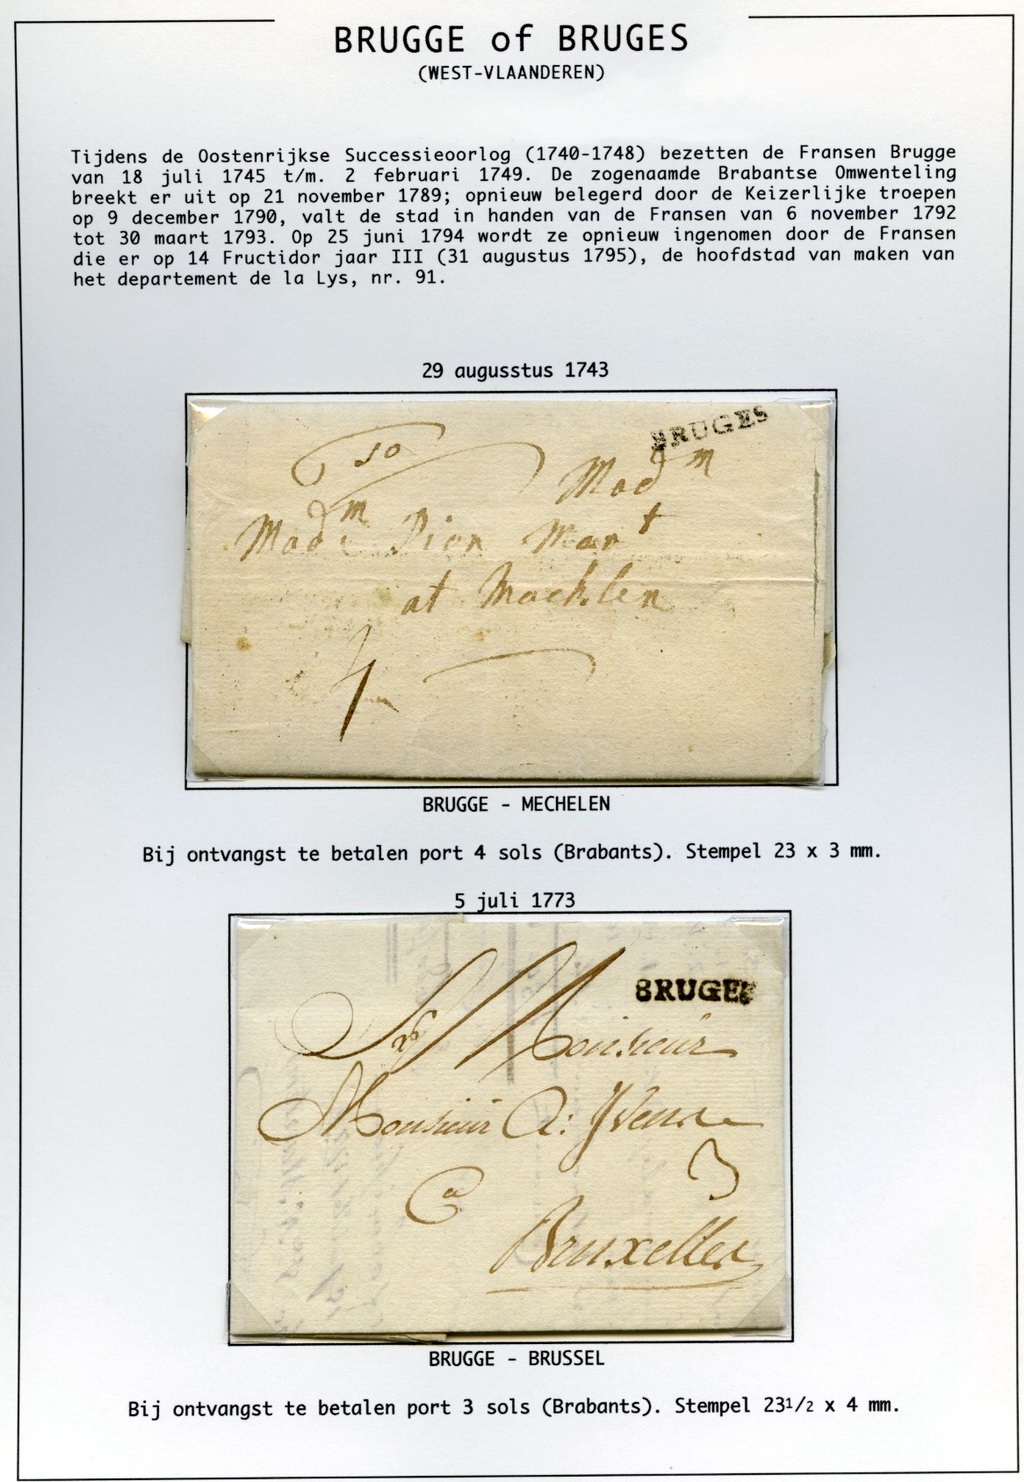 BRUGGE of BRUGES
(WEST-VLAANDEREN)
Tijdens de Oostenrijkse Successieoorlog (1740-1748) bezetten de Fransen Brugge
van 18 juli 1745 t/m. 2 februari 1749. De zogenaamde Brabantse Omwenteling
breekt er uit op 21 november 1789; opnieuw belegerd door de Keizerlijke troepen
op 9 december 1790, valt de stad in handen van de Fransen van 6 november 1792
tot 30 maart 1793. Op 25 juni 1794 wordt ze opnieuw ingenomen door de Fransen
die er op 14 Fructidor jaar III (31 augustus 1795), de hoofdstad van maken van
het departement de la Lys, nr. 91.
29 augusstus 1743
BRUGES
Mad m
Mad m Mart
at Mechlen
4
BRUGGE - MECHELEN
Bij ontvangst te betalen port 4 sols (Brabants). Stempel 23 x 3 mm.
5 juli 1773
BRUGES
Monsieur
Monsieur
3
a
Bruxelles
BRUGGE - BRUSSEL
Bij ontvangst te betalen port 3 sols (Brabants). Stempel 23 1/2 x 4 mm.